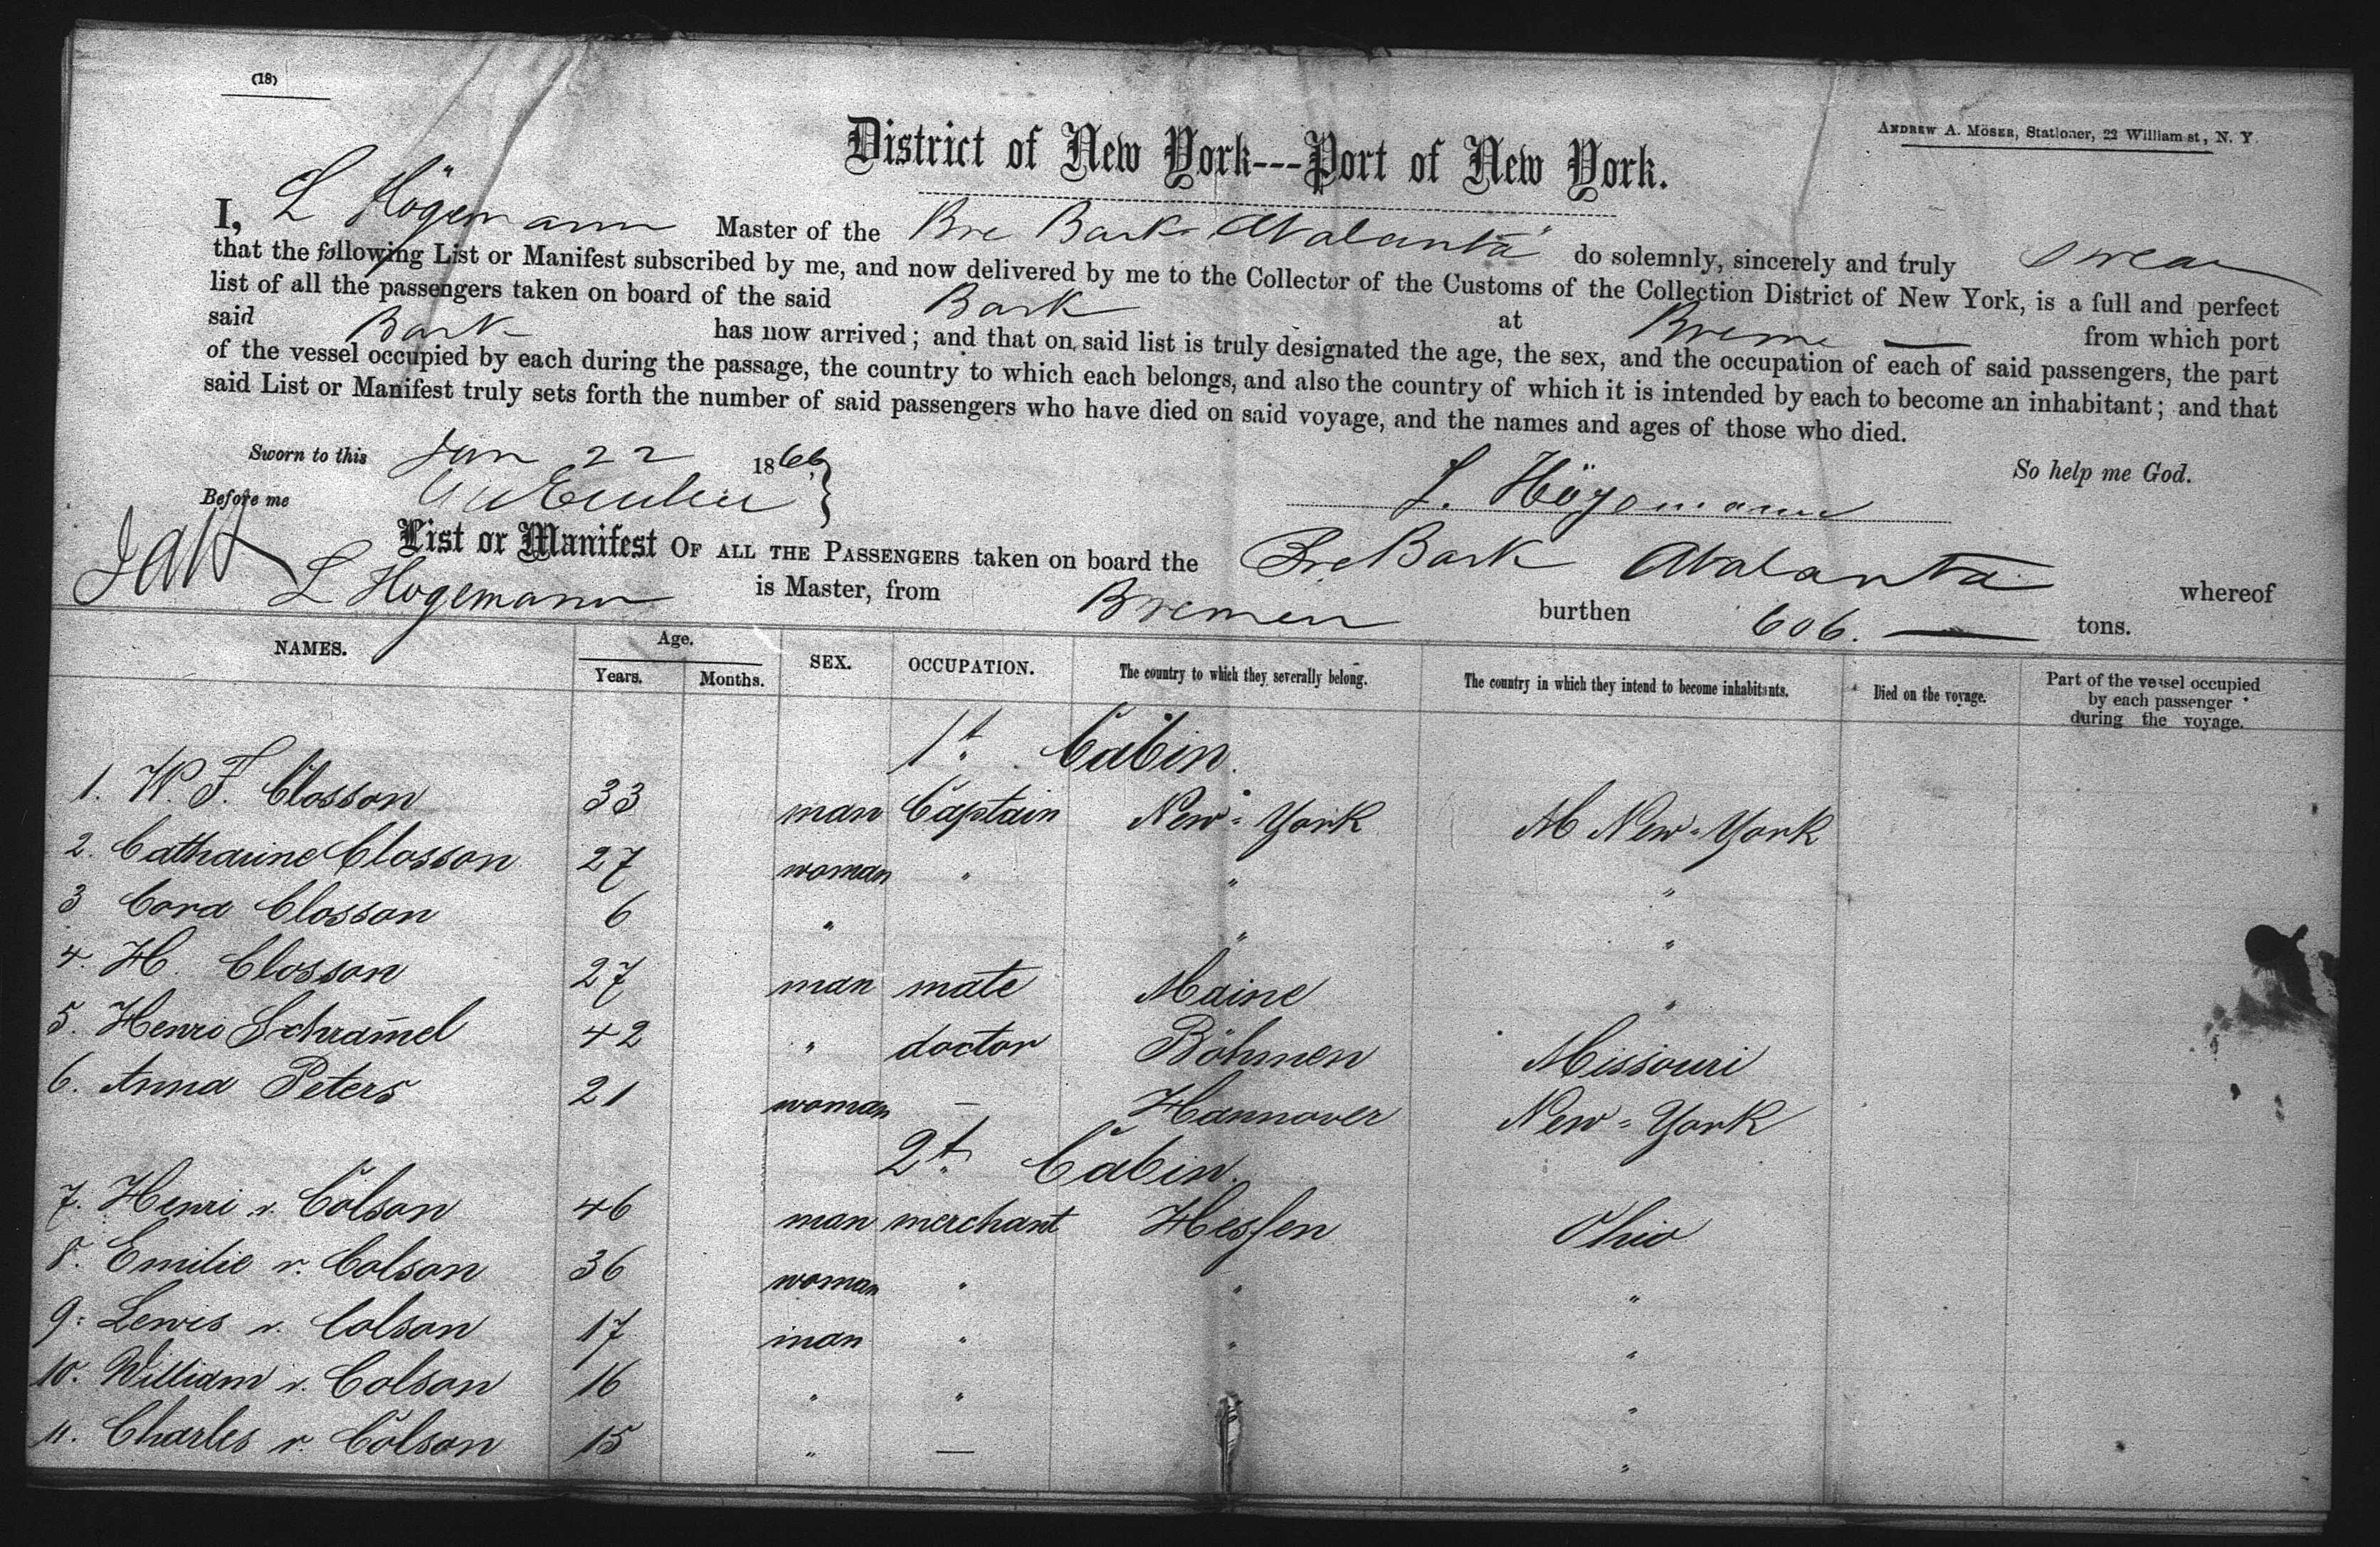 (18)
ANDREW A. MÖSER, Stationer, 22 William st, N. Y.
District of New York---Port of New York.
I, L Högemann Master of the Bre Bark Atalanta do solemnly, sincerely and truly swear
that the following List or Manifest subscribed by me, and now delivered by me to the Collector of the Customs of the Collection District of New York, is a full and perfect
list of all the passengers taken on board of the said Bark at Breme from which port
said Bark has now arrived; and that on said list is truly designated the age, the sex, and the occupation of each of said passengers, the part
of the vessel occupied by each during the passage, the country to which each belongs, and also the country of which it is intended by each to become an inhabitant; and that
said List or Manifest truly sets forth the number of said passengers who have died on said voyage, and the names and ages of those who died.
Sworn to this Jan 22 1866 So help me God.
Before me L. Högemann
List or Manifest OF ALL THE PASSENGERS taken on board the Bre Bark Atalanta whereof
L Hogemann is Master, from Bremen burthen 606. — tons.
NAMES. Age. Years. Months. SEX. OCCUPATION. The country to which they severally belong. The country in which they intend to become inhabitants. Died on the voyage. Part of the vessel occupied by each passenger during the voyage.
1t. Cabin.
1. W. F. Closson 33 man Captain New=York New=York
2. Catharine Closson 27 woman " " "
3 Cora Closson 6 " " "
4. H. Closson 27 man mate Maine "
5. Henri Schramel 42 " doctor Böhmen Missouri
6. Anna Peters 21 woman — Hannover New=York
2t. Cabin.
7. Henri v. Colson 46 man merchant Hessen Ohio
8. Emilie v. Colson 36 woman " " "
9. Lewis v. Colson 17 man " " "
10. William v. Colson 16 " " "
11. Charles v. Colson 15 " — "